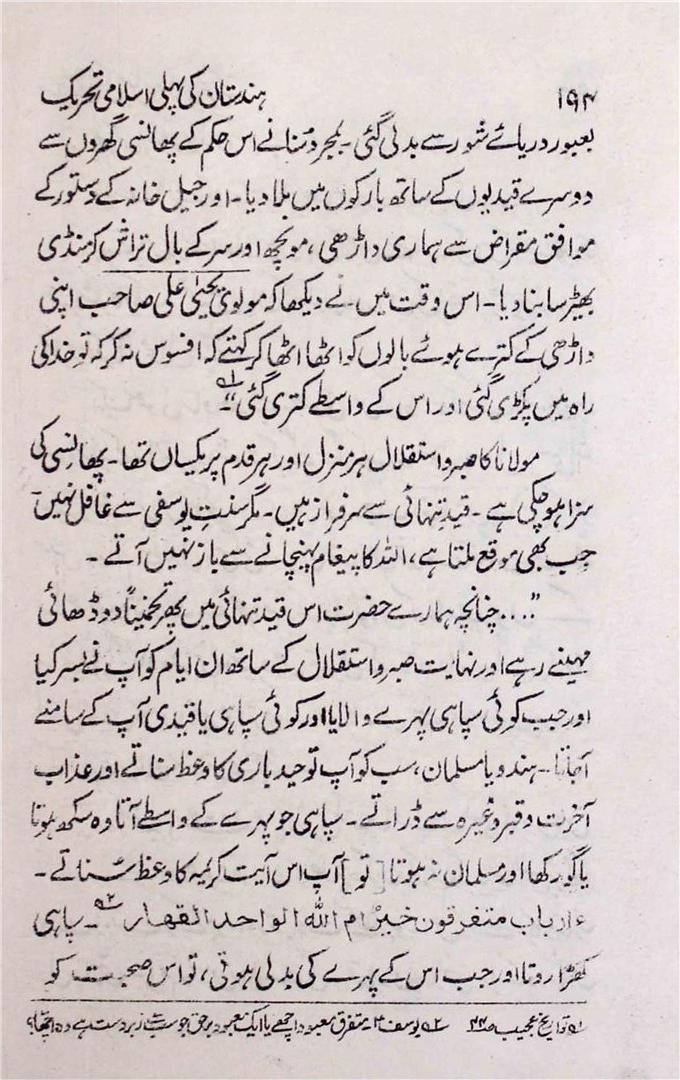 ۱۹۴ ہندستان کی پہلی اسلامی تحریک
بعبور دریائے شور سے بدلی گئی۔ بمجرد سنانے اس حکم کے پھانسی گھروں سے
دوسرے قیدیوں کے ساتھ بارکوں میں ملا دیا۔ اور جیل خانہ کے دستور کے
موافق مقراض سے ہماری داڑھی، مونچھ اور سر کے بال تراش کر منڈی
بھیڑ سا بنا دیا۔ اس وقت میں نے دیکھا کہ مولوی یحییٰ علی صاحب اپنی
داڑھی کے کترے ہوئے بالوں کو اٹھا اٹھا کر کہتے کہ افسوس نہ کر کہ تو خدا کی
راہ میں پکڑی گئی اور اس کے واسطے کتری گئی“۔ ۹۱
مولانا کا صبر و استقلال ہر منزل اور ہر قدم پر یکساں تھا۔ پھانسی کی
سزا ہو چکی ہے۔ قیدِ تنہائی سے سرفراز ہیں۔ مگر سنتِ یوسفی سے غافل نہیں۔
جب بھی موقع ملتا ہے، اللہ کا پیغام پہنچانے سے باز نہیں آتے۔
”.... چنانچہ ہمارے حضرت اس قید تنہائی میں پھر تخمیناً دو ڈھائی
مہینے رہے اور نہایت صبر و استقلال کے ساتھ ان ایام کو آپ نے بسر کیا
اور جب کوئی سپاہی پہرے والا یا اور کوئی سپاہی یا قیدی آپ کے سامنے
آجاتا۔ ہندو یا مسلمان، سب کو آپ توحید باری کا وعظ سناتے اور عذاب
آخرت و قبر وغیرہ سے ڈراتے۔ سپاہی جو پہرے کے واسطے آتا وہ سکھ ہوتا
یا گورکھا اور مسلمان نہ ہوتا [تو] آپ اس آیت کریمہ کا وعظ سناتے۔
ءارباب متفرقون خیرٌ ام اللہ الواحد القہار ۹۲۔ سپاہی
کھڑا روتا اور جب اس کے پہرے کی بدلی ہوتی، تو اس صحبت کو
۹۱ تواریخ عجیب ص ۹۲ یوسف متفرق معبود اچھے یا ایک معبود برحق جو سب سے زبردست ہے وہ اچھا؟